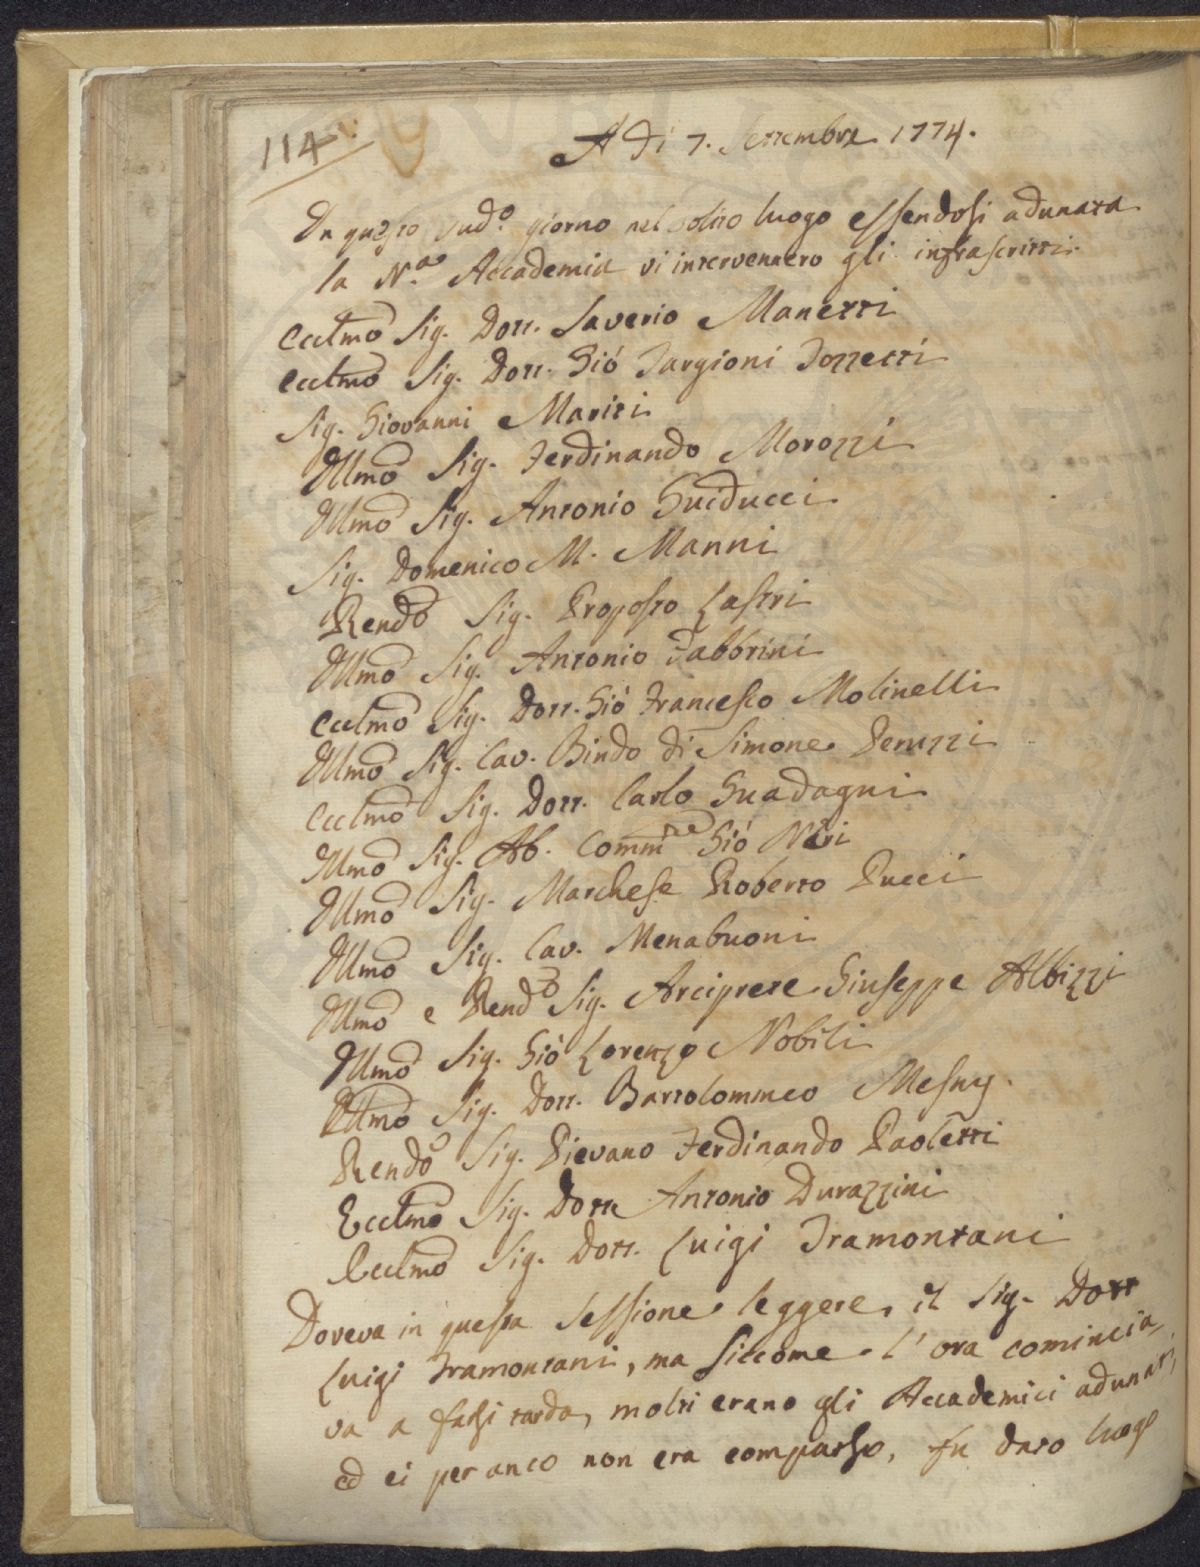 114
A di 7. Settembre 1774.
In questo sud.o giorno nel solito luogo essendosi adunata
la N.a Accademia vi intervennero gli infrascritti.
Ecclmo Sig. Dott. Saverio Manetti
Ecclmo Sig. Dott. Gio Targioni Tozzetti
Sig. Giovanni Mariti
Illmo Sig. Ferdinando Morozzi
Illmo Sig. Antonio Guiducci
Sig. Domenico M. Manni
Rendo Sig. Proposto Lastri
Illmo Sig. Antonio Fabbrini
Ecclmo Sig. Dott. Gio Francesco Molinelli
Illmo Sig. Cav. Bindo di Simone Peruzzi
Ecclmo Sig. Dott. Carlo Guadagni
Illmo Sig. Ab. Commre Gio Neri
Illmo Sig. Marchese Roberto Pucci
Illmo Sig. Cav. Menabuoni
Illmo e Rendo Sig. Arciprete Giuseppe Albizzi
Illmo Sig. Gio Lorenzo Nobili
Illmo Sig. Dott. Bartolommeo Mesny.
Rendo Sig. Pievano Ferdinando Paoletti
Ecclmo Sig. Dott. Antonio Durazzini
Ecclmo Sig. Dott. Luigi Tramontani
Doveva in questa sessione leggere il Sig. Dott
Luigi Tramontani, ma siccome l'ora comincia-
va a farsi tarda, molti erano gli Accademici adunati,
ed ei per anco non era comparso, fu dato luogo